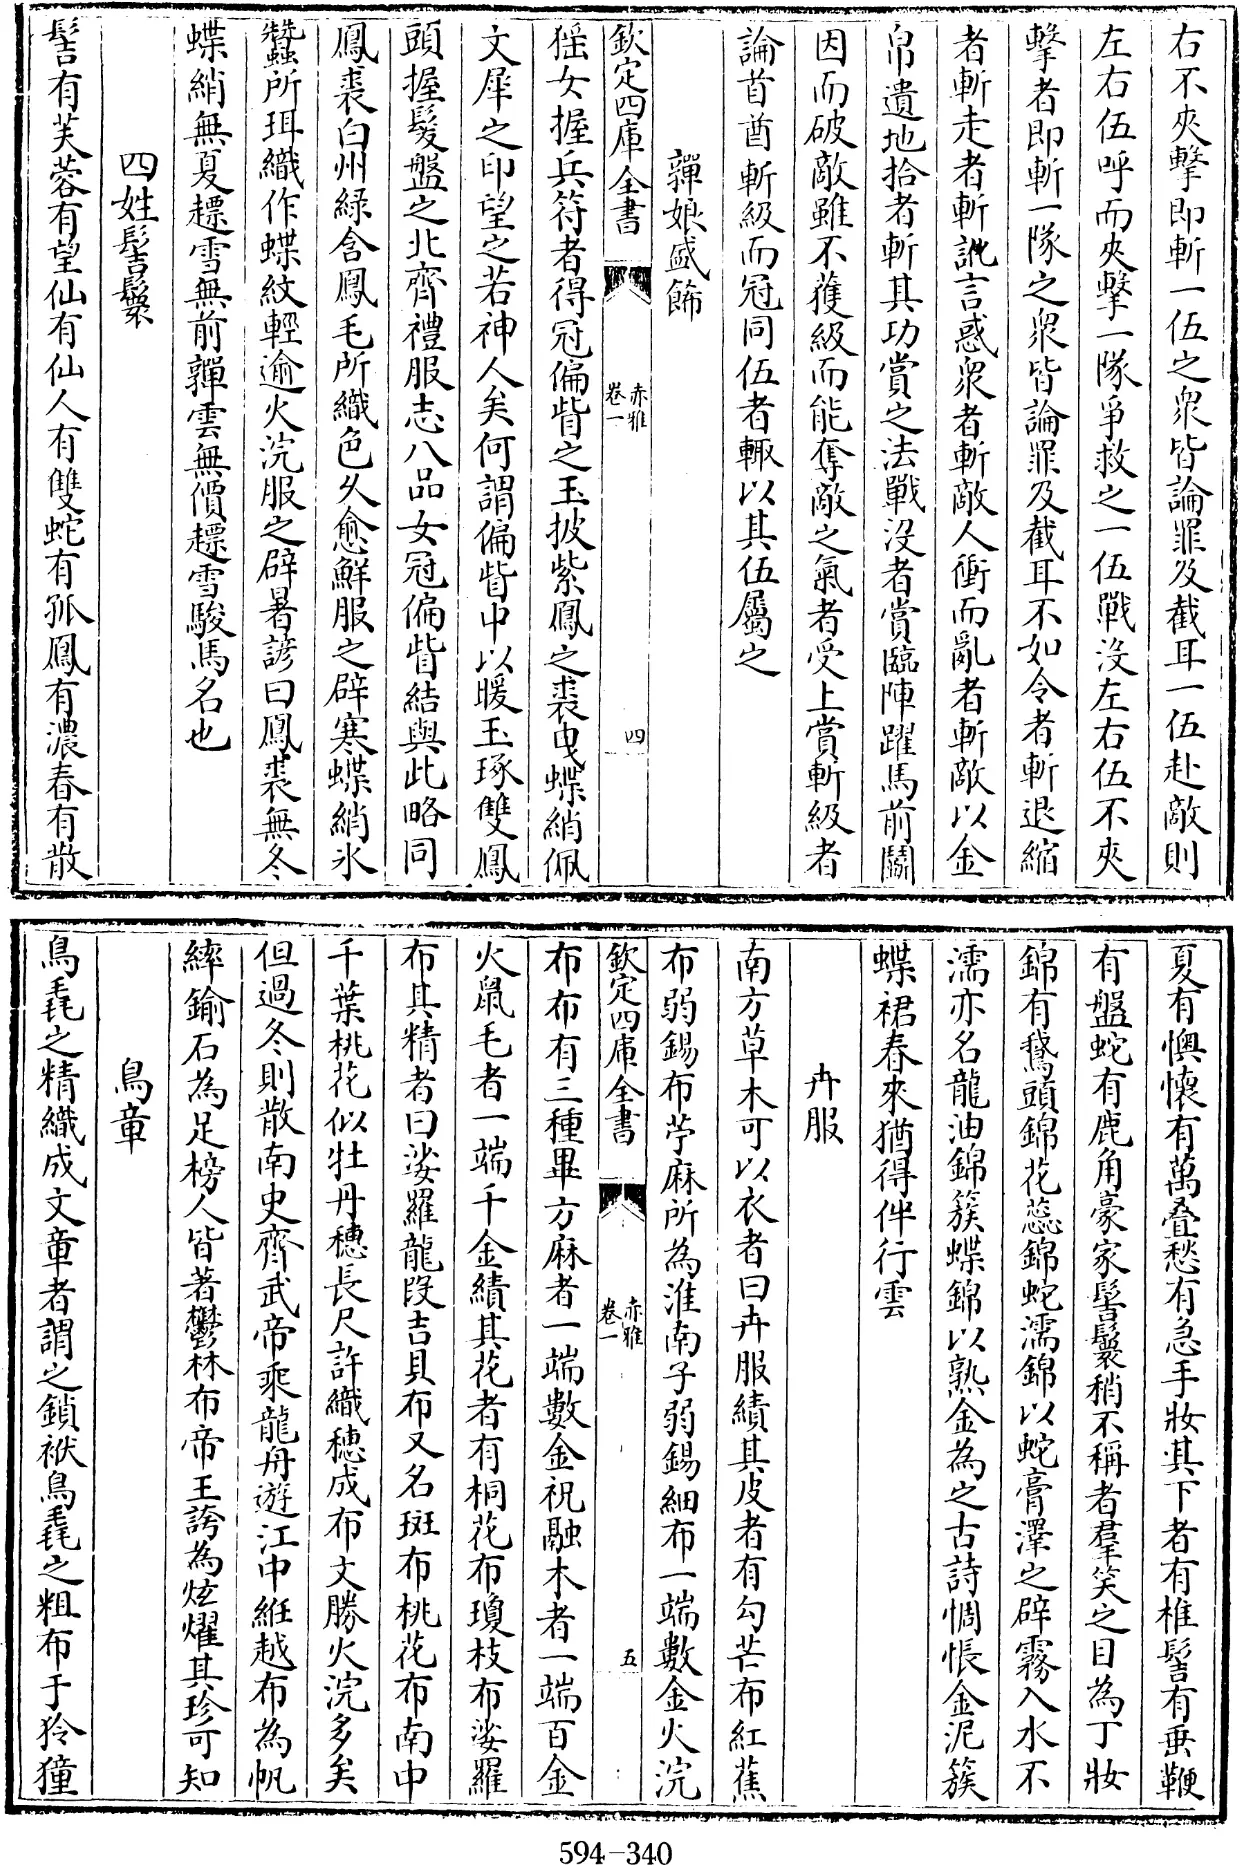 右不夾擊即斬一伍之衆皆論罪及截耳一伍赴敵則
左右伍呼而夾擊一隊爭救之一伍戰沒左右伍不夾
擊者即斬一隊之衆皆論罪及截耳不如令者斬退縮
者斬走者斬訛言惑衆者斬敵人衝而亂者斬敵以金
帛遺地拾者斬其功賞之法戰沒者賞臨陣躍馬前鬭
因而破敵雖不獲級而能奪敵之氣者受上賞斬級者
論首酋斬級而冠同伍者輙以其伍屬之
䩥娘盛飾
欽定四庫全書
赤雅
卷一
四
猺女握兵符者得冠偏眥之玉披紫鳳之裘曳蝶綃佩
文犀之印望之若神人矣何謂偏眥中以暖玉琢雙鳳
頭握髮盤之北齊禮服志八品女冠偏眥結與此略同
鳳裘白州緑含鳳毛所織色久愈鮮服之辟寒蝶綃氷
蠶所珥織作蝶紋輕逾火浣服之辟暑諺曰鳳裘無冬
蝶綃無夏趯雪無前䩥雲無價趯雪駿馬名也
四姓髻鬟
髻有芙蓉有望仙有仙人有雙蛇有孤鳳有濃春有散
夏有懊懷有萬疊愁有急手妝其下者有椎髻有垂鞭
有盤蛇有鹿角豪家髻鬟稍不稱者羣笑之目為丁妝
錦有鵞頭錦花蕊錦蛇濡錦以蛇膏澤之辟霧入水不
濡亦名龍油錦簇蝶錦以熟金為之古詩惆悵金泥簇
蝶裙春來猶得伴行雲
卉服
南方草木可以衣者曰卉服績其皮者有勾芒布紅蕉
布弱錫布苧麻所為淮南子弱錫細布一端數金火浣
欽定四庫全書
赤雅
卷一
五
布布有三種畢方麻者一端數金祝融木者一端百金
火鼠毛者一端千金績其花者有桐花布瓊枝布娑羅
布其精者曰娑羅龍段吉貝布又名斑布桃花布南中
千葉桃花似牡丹穗長尺許織穗成布文勝火浣多矣
但過冬則散南史齊武帝乘龍舟遊江中絍越布為帆
繂鍮石為足榜人皆著鬱林布帝王誇為炫燿其珍可知
鳥章
鳥毳之精織成文章者謂之鎖袱鳥毳之粗布于狑獞
594-340